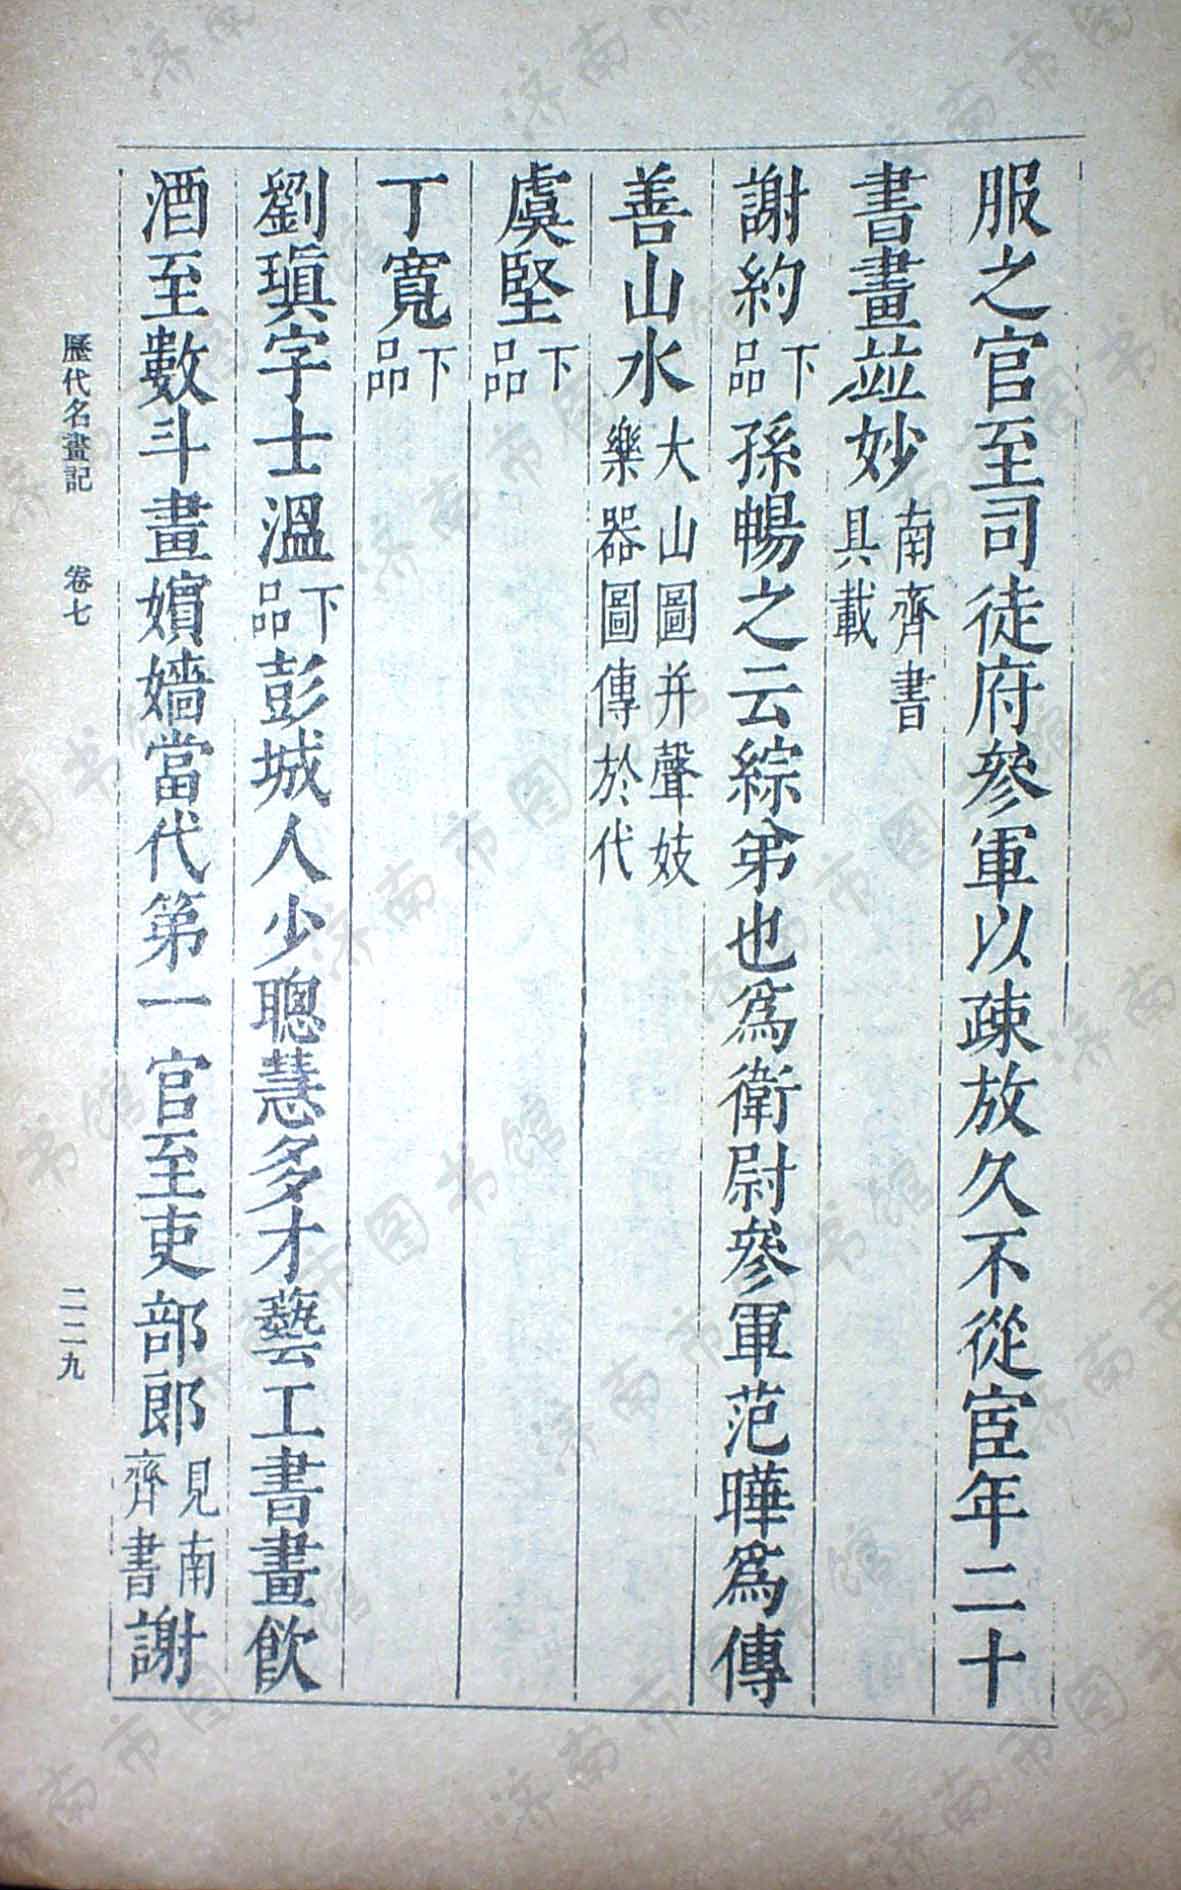 服之官至司徒府參軍以疎放久不從宦年二十
書畫並妙南齊書具載
謝約下品孫暢之云綜弟也爲衛尉參軍范曄爲傳
善山水大山圖并聲妓樂器圖傳於代
虞堅下品
丁寬下品
劉瑱字士溫下品彭城人少聰慧多才藝工書畫飲
酒至數斗畫嬪嬙當代第一官至吏部郎見南齊書謝
歷代名畫記 卷七 二二九
济南市图书馆